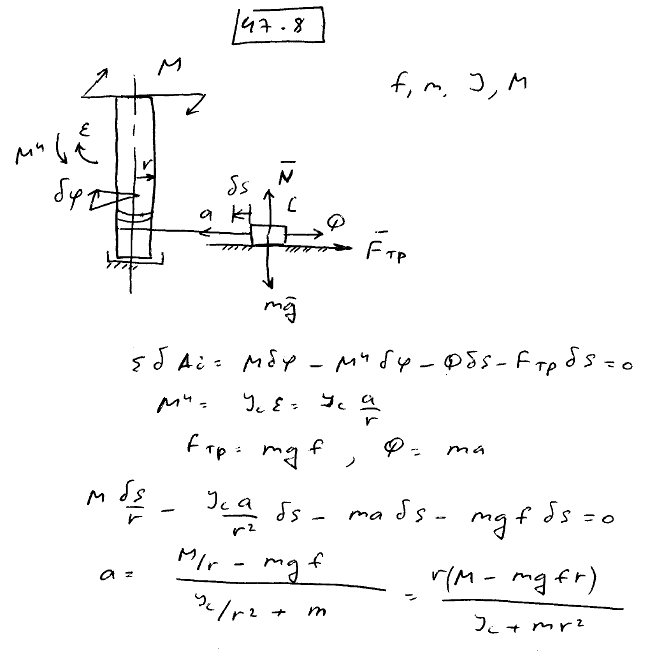 47.8
M
f, m, J, M
ε
Mᵘ
r
δφ
δs
N̄
C
a
Φ
F̄тр
mḡ
Σ δ Ai = Mδφ − Mᵘ δφ − Φδs − Fтр δs = 0
Mᵘ = Jc ε = Jc a/r
Fтр = mg f , Φ = ma
M δs/r − Jc a/r² δs − ma δs − mg f δs = 0
a = (M/r − mg f)/(Jc/r² + m) = r(M − mg f r)/(Jc + mr²)